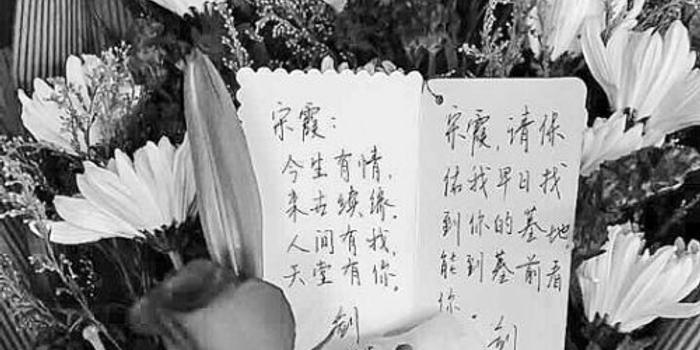 宗霞：
今生有情，
来世续缘。
人间有我，
天堂有你。
剑
宗霞，请保
佑我早日找
到你的墓地，
能到墓前看
你。
剑